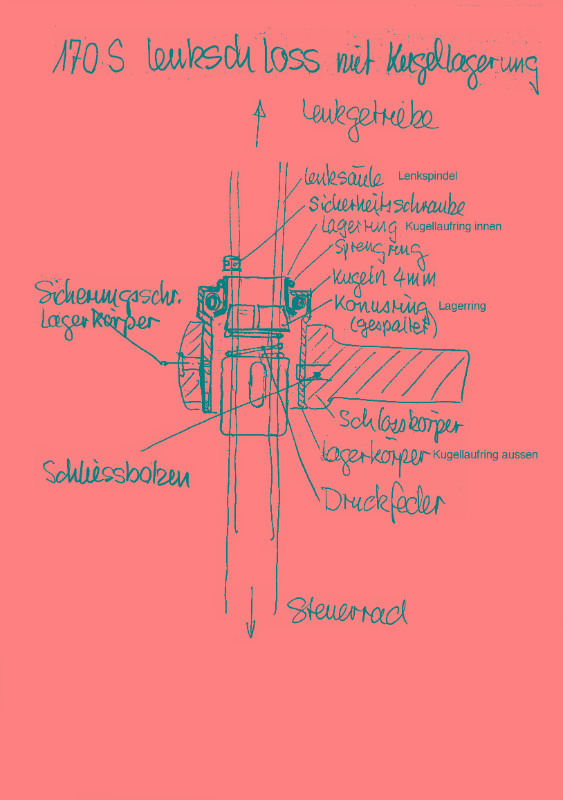 170 S Lenkschloss mit Kugellagerung
Lenkgetriebe
Lenksäule Lenkspindel
Sicherheitsschraube
Lagerring Kugellaufring innen
Sprengring
Kugeln 4mm
Konusring Lagerring
(gespalten)
Sicherungsschr.
Lagerkörper
Schlosskörper
Lagerkörper Kugellaufring aussen
Schliessbolzen
Druckfeder
Steuerrad